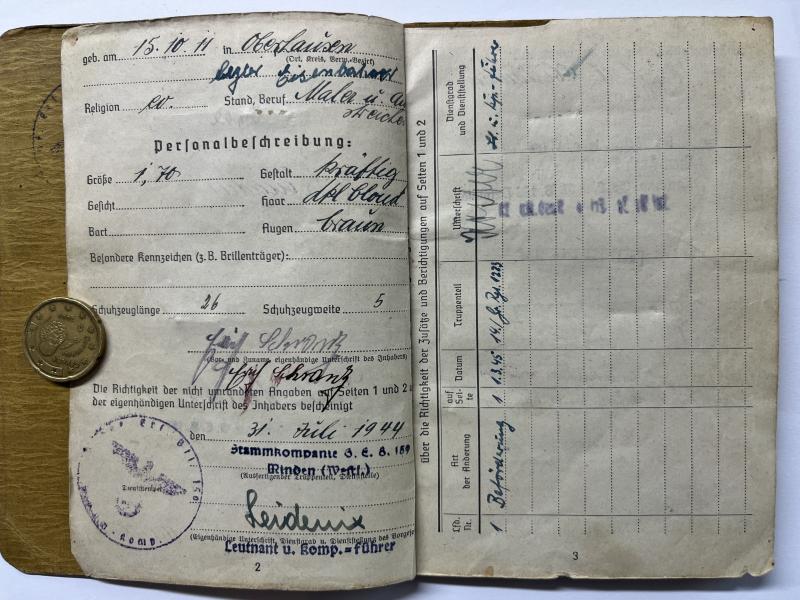 geb. am 15.10.11 in Oberhausen
(Ort, Kreis, Verw.-Bezirk)
Religion ev. Stand, Beruf Maler u. An
streicher
Personalbeschreibung:
Größe 1,70 Gestalt kräftig
Gesicht Haar dkl blond
Bart Augen braun
Besondere Kennzeichen (z. B. Brillenträger):
Schuhzeuglänge 26 Schuhzeugweite 5
(Vor- und Zuname, eigenhändige Unterschrift des Inhabers)
Die Richtigkeit der nicht umrandeten Angaben auf Seiten 1 und 2 u
der eigenhändigen Unterschrift des Inhabers bescheinigt
den 31. Juli 1944
Stammkompanie G. E. B. 159
Minden (Westf.)
(Ausfertigender Truppenteil, Dienststelle)
(Eigenhändige Unterschrift, Dienstgrad u. Dienststellung des Vorgese
Leutnant u. Komp.-führer
2
Dienstsiegel
über die Richtigkeit der Zusätze und Berichtigungen auf Seiten 1 und 2
Lfd. Nr.
Art der Änderung
auf Sei-te
Datum
Truppenteil
Unterschrift
Dienstgrad und Dienststellung
1 Beförderung 1 1.3.45 14./
3